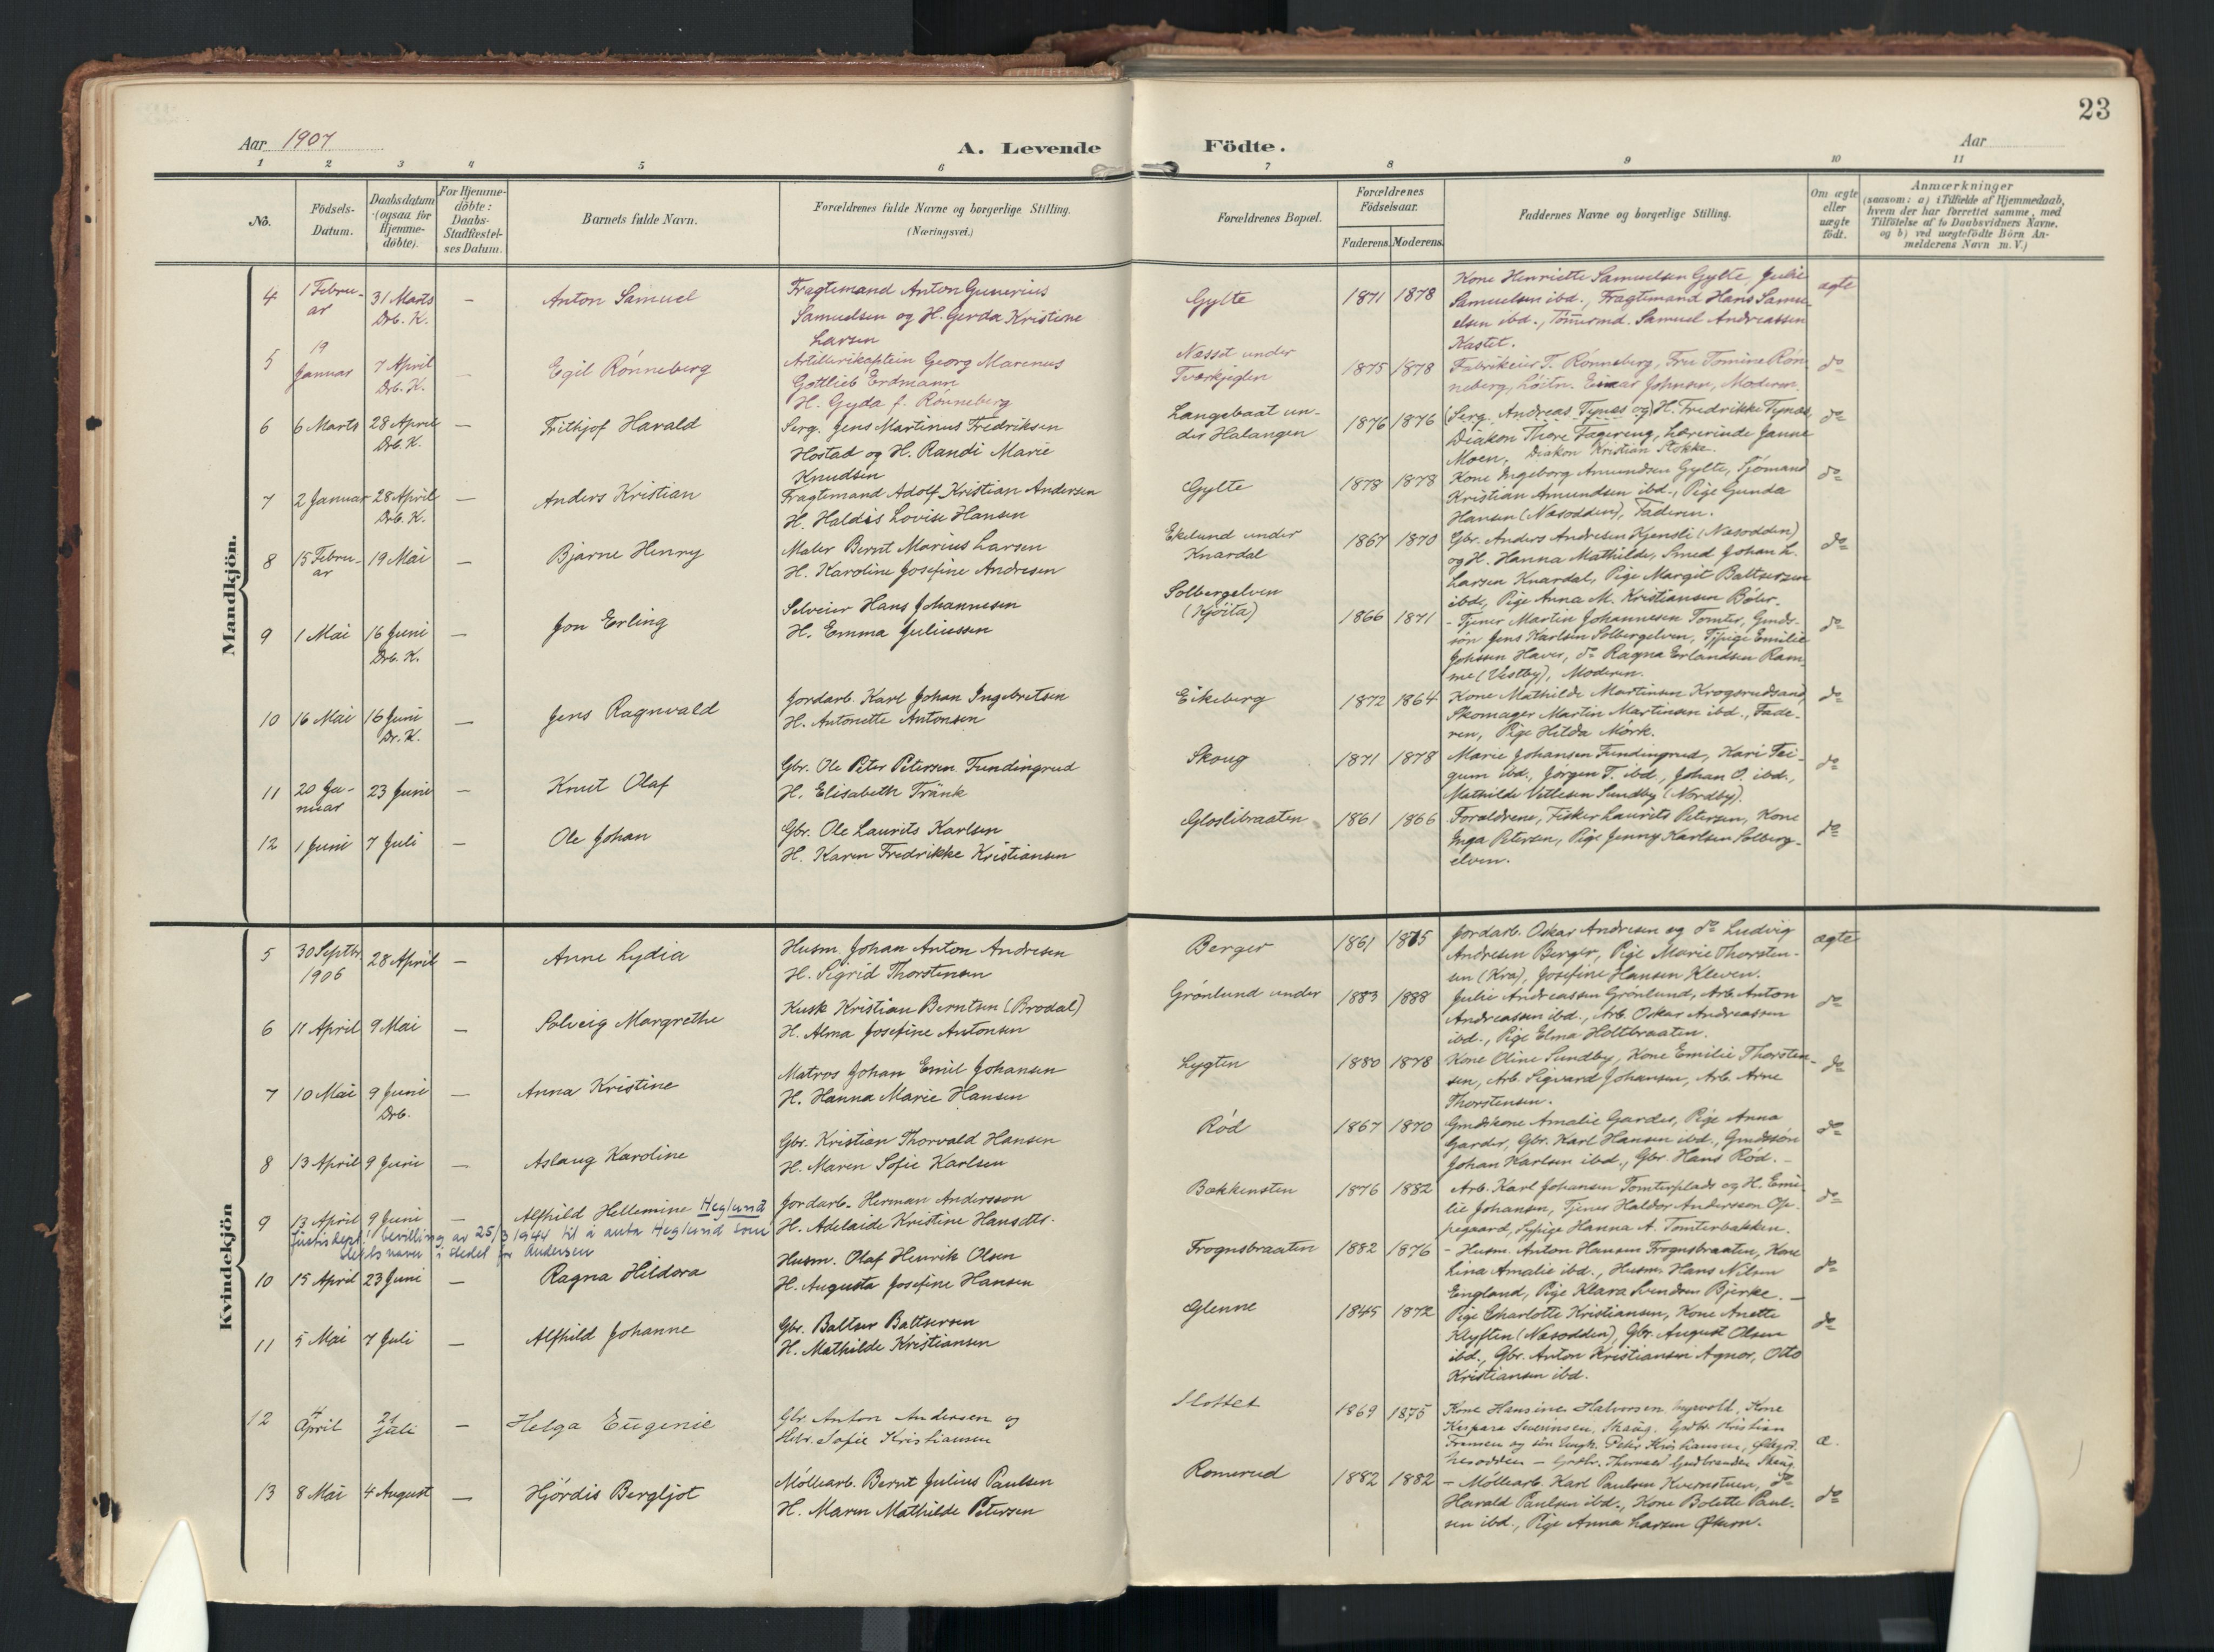 23
Aar 1907
A. Levende Födte.
Aar
1 2 3 4 5 6 7 8 9 10 11
No.
Födsels-Datum.
Daabsdatum (ogsaa for Hjemme-döbte).
For Hjemme-döbte: Daabs-Stadfæstel-ses Datum.
Barnets fulde Navn.
Forældrenes fulde Navne og borgerlige Stilling. (Næringsvei.)
Forældrenes Bopæl.
Forældrenes Födselsaar.
Faderens. Moderens.
Faddernes Navne og borgerlige Stilling.
Om ægte eller uægte födt.
Anmærkninger
(saasom: a) i Tilfælde af Hjemmedaab, hvem der har forrettet samme, med Tilföielse af to Daabsvidners Navne, og b) ved uægtefödte Börn An-melderens Navn m. V.)
Mandkjön.
4 1 Febru-ar 31 Marts Drb. K. — Anton Samuel
Fragtemand Anton Gunerius
Samuelsen og H. Gerda Kristine
Larsen
Gylte 1871 1878
Kone Henriette Samuelsen Gylte, Julie
Samuelsen ibd., Fragtemand Hans Samu-
elsen ibd., Tömermd. Samuel Andreassen
Kastet.
ægte
5 19 Januar 7 April Drb. K. — Egil Rönneberg
Artillerikaptein Georg Marenus
Gottlieb Erdmann
H. Gyda f. Rönneberg
Næsset under
Tværkjeglen
1875 1878
Fabrikeier T. Rönneberg, Fru Tomine Rön-
neberg, Löitn. Einar Johnsen, Moderen.
do
6 6 Marts 28 April Drb. K. — Frithjof Harald
Serg. Jens Martinus Fredriksen
Hostad og H. Randi Marie
Knudsen
Langebaat un-
der Halangen
1876 1876
(Serg. Andreas Tynæs og) H. Fredrikke Tynæs,
Diakon Thore Fagereng, Lærerinde Janne
Moen, Diakon Kristian Stokke.
do
7 2 Januar 28 April Drb. K. — Anders Kristian
Fragtemand Adolf Kristian Andersen
H. Haldis Lovise Hansen
Gylte 1878 1878
Kone Ingeborg Amundsen Gylte, Sjömand
Kristian Amundsen ibd., Pige Gunda
Hansen (Næsodden), Faderen.
do
8 15 Febru-ar 19 Mai — Bjarne Henry
Maler Bernt Marius Larsen
H. Karoline Josefine Andresen
Ekelund under
Knardal
1867 1870
Gbr. Anders Andresen Kjensli (Næsodden)
og H. Hanna Mathilde, Smed Johan L.
Larsen Knardal, Pige Margit Baltsersen
ibd., Pige Anna M. Kristiansen Böler.
do
9 1 Mai 16 Juni Drb. K. — Jon Erling
Selveier Hans Johannesen
H. Emma Juliussen
Solbergelven
(Kjöita)
1866 1871
- Tjener Martin Johannesen Tomter, Gmds-
sön Jens Karlsen Solbergelven, Tjpige Emilie
Johssen Haver, do Ragna Erlandsen Ram-
me (Vestby), Moderen.
do
10 16 Mai 16 Juni Dr. K. — Jens Ragnvald
Jordarb. Karl Johan Ingebretsen
H. Antonette Antonsen
Eikeberg 1872 1864
Kone Mathilde Martinsen Krogsrudsand,
Skomager Martin Martinsen ibd., Fade-
ren, Pige Hilda Mörk.
do
11 20 Ja-nuar 23 Juni — Knut Olaf
Gbr. Ole Peter Petersen Fundingrud
H. Elisabeth Tränk
Skoug 1871 1878
Marie Johansen Fundingrud, Kari Fei-
gum ibd., Jörgen T. ibd., Johan O. ibd.,
Mathilde Vetlesen Sundby (Nordby).
do
12 1 Juni 7 Juli — Ole Johan
Gbr. Ole Laurits Karlsen
H. Karen Fredrikke Kristiansen
Gloslibraaten 1861 1866
Forældrene, Fisker Laurits Petersen, Kone
Inga Petersen, Pige Jenny Karlsen Solberg-
elven.
do
Kvindekjön
5 30 Septbr. 1906 28 April — Anne Lydia
Husm. Johan Anton Andresen
H. Sigrid Thorstensen
Berger 1861 1875
Jordarb. Oskar Andresen og do Ludvig
Andresen Berger, Pige Marie Thorsten-
sen (Kra), Josefine Hansen Kleven.
ægte
6 11 April 9 Mai — Solveig Margrethe
Kusk Kristian Berntsen (Brodal)
H. Alma Josefine Antonsen
Grönlund under 1883 1888
Julie Andreassen Grönlund, Arb. Anton
Andreassen ibd., Arb. Oskar Andreassen
ibd., Pige Elma Holtbraaten.
do
7 10 Mai 9 Juni Drb. — Anna Kristine
Matros Johan Emil Johansen
H. Hanna Marie Hansen
Lygten 1880 1878
Kone Oline Sundby, Kone Emilie Thorsten-
sen, Arb. Sigvard Johansen, Arb. Arne
Thorstensen.
do
8 13 April 9 Juni — Aslaug Karoline
Gbr. Kristian Thorvald Hansen
H. Maren Sofie Karlsen
Röd 1867 1870
Gmdskone Amalie Garder, Pige Anna
Garder, Gbr. Karl Hansen ibd., Gmdssön
Johan Karlsen ibd., Gbr. Hans Röd. -
do
9 13 April 9 Juni — Alfhild Hellemine Heglund
Justisdept.s bevilling av 25/3 1944 til å anta Heglund som
slektsnavn i stedet for Andersen
Jordarb. Herman Andersson
H. Adelaide Kristine Hansdtr.
Bækkensten 1876 1882
Arb. Karl Johansen Tomterplads og H. Emi-
lie Johansen, Tjener Haldor Andersson Op-
pegaard, Sypige Hanna A. Tomterbakken.
do
10 15 April 23 Juni — Ragna Hildora
Husm. Olaf Henrik Olsen
H. Augusta Josefine Hansen
Frognsbraaten 1882 1876
- Husm. Anton Hansen Frognsbraaten, Kone
Lina Amalie ibd., Husm. Hans Nilsen
England, Pige Klara Svendsen Bjerke. —
do
11 5 Mai 7 Juli — Alfhild Johanne
Gbr. Baltser Baltsersen
H. Mathilde Kristiansen
Glenne 1845 1872
Pige Charlotte Kristiansen, Kone Anette
Klyften (Næsodden), Gbr. August Olsen
ibd., Gbr. Anton Kristiansen Agnor, Otto
Kristiansen ibd.
do
12 4 April 21 Juli — Helga Eugenie
Gbr. Anton Andersen og
Hstr. Sofie Kristiansen
Slottet 1869 1875
Kone Hansine Halvorsen, Kone
Kaspara Severinsen, Skaug, Gdbr. Kristian
Fransen og Peter Kristiansen,
Nesodden — Gdbr. Thorvald Gudbrandsen Skaug.
æ.
13 8 Mai 4 August — Hjördis Bergljot
Möllearb. Bernt Julius Paulsen
H. Maren Mathilde Petersen
Romerud 1882 1882
- Möllearb. Karl Paulsen Kvernstuen, do
Harald Paulsen ibd., Kone Bolette Paul-
sen ibd., Pige Anna Larsen
do